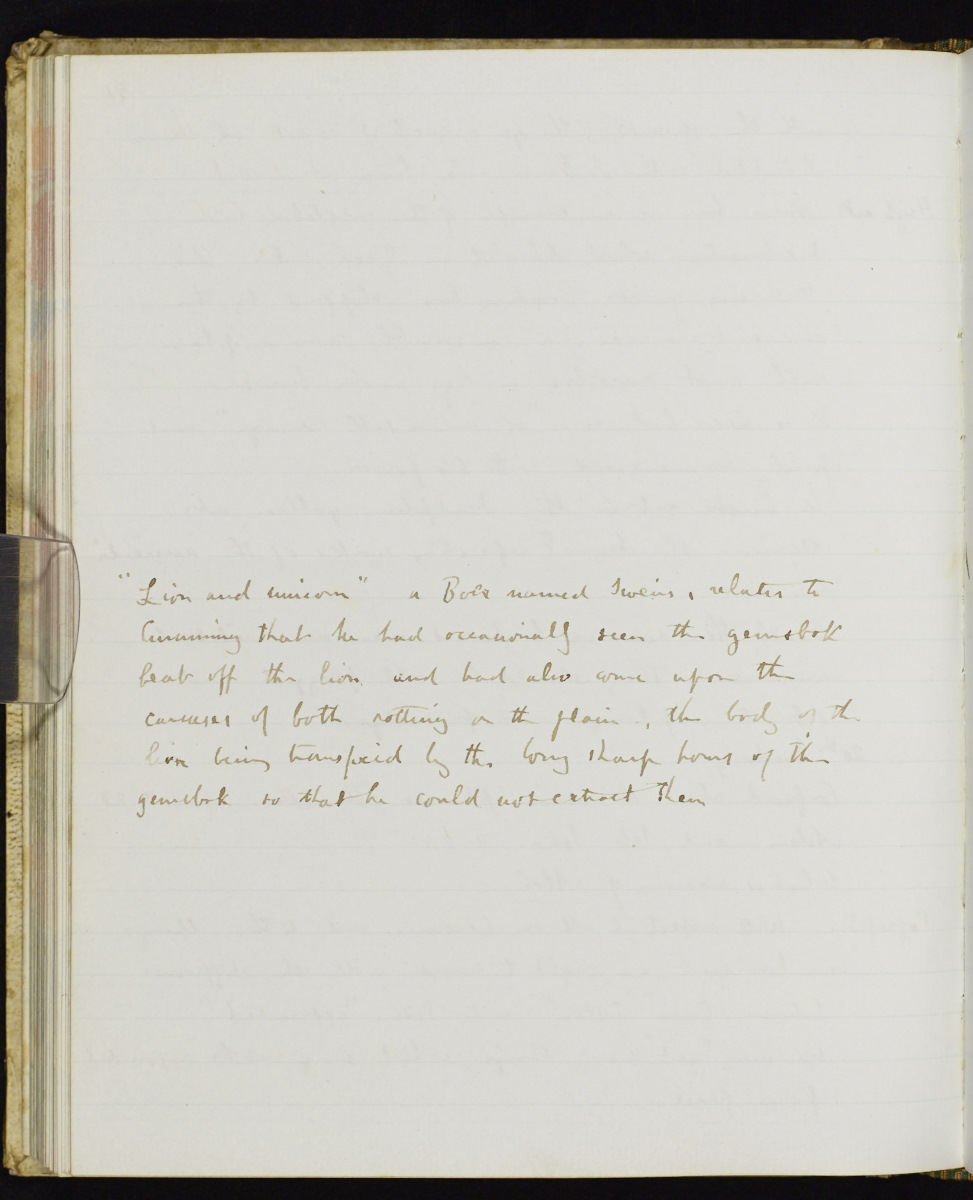 "Lion and unicorn" a Boer named Sweirs, relates to
Cumming that he had occasionally seen the gemsbok
beat off the lion, and had also come upon the
carcases of both rotting on the plain, the body of the
lion being transfixed by the long sharp horns of the
gemsbok so that he could not extract them